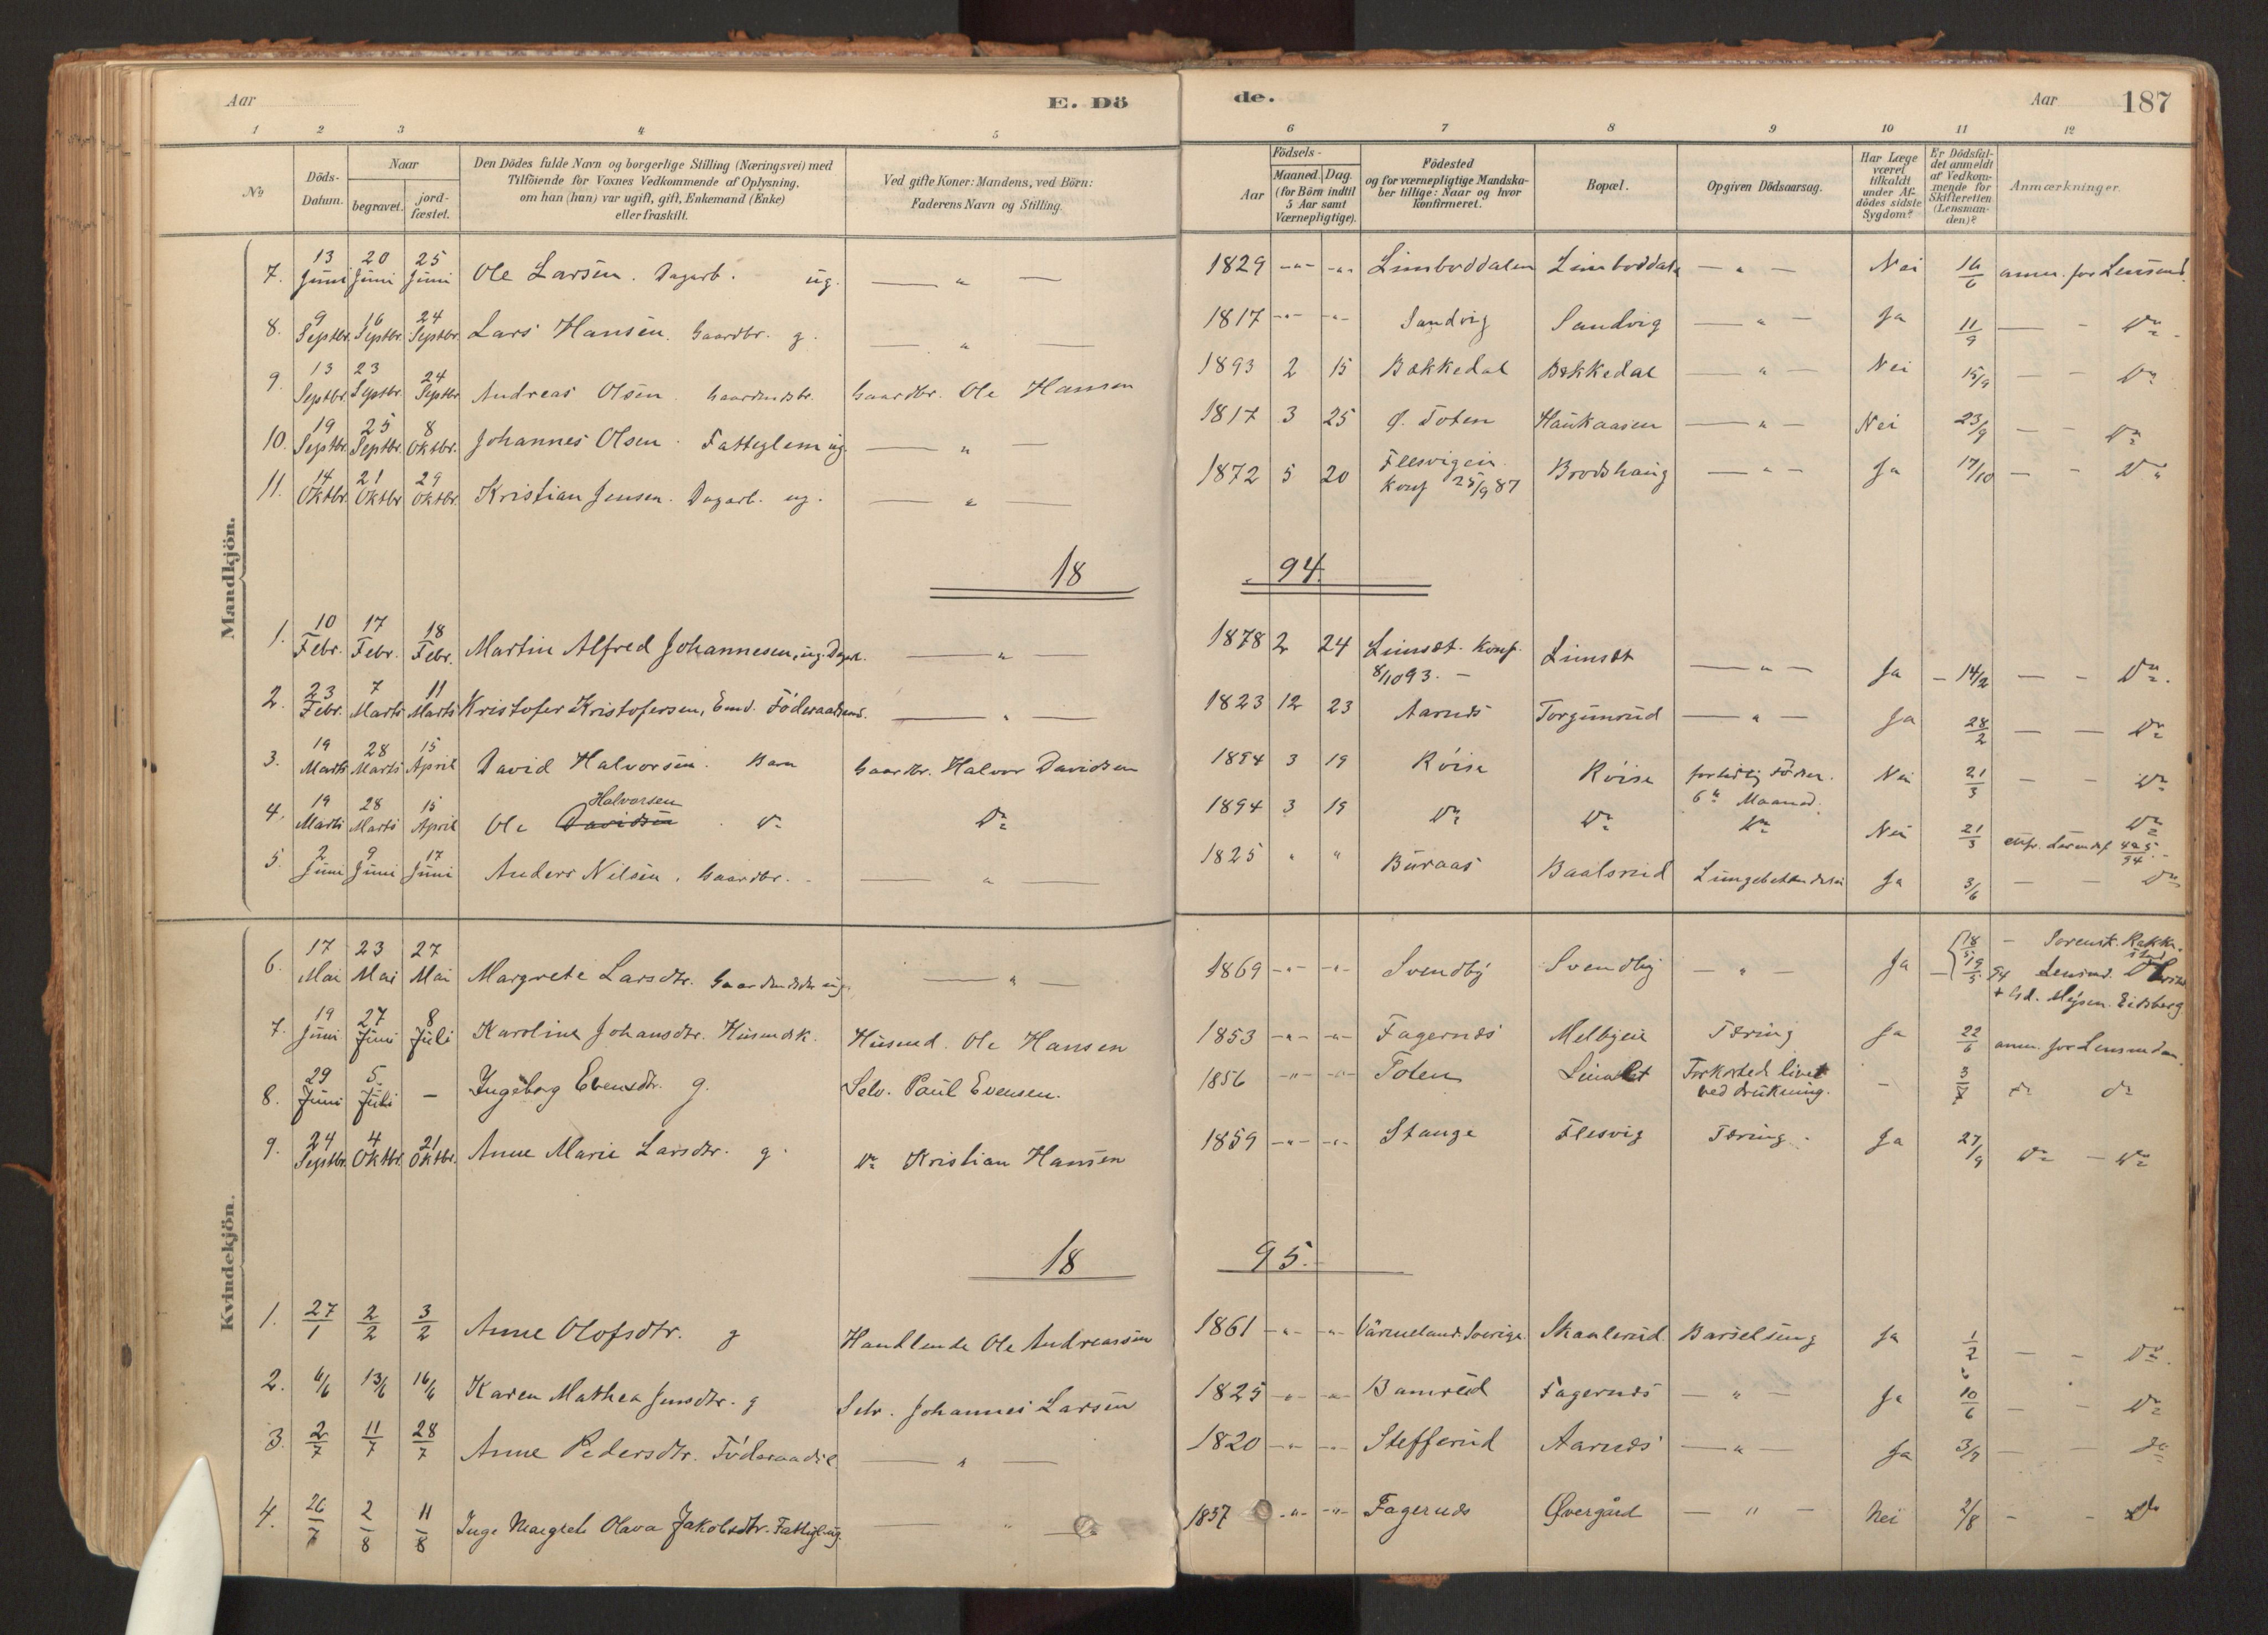 Aar
E. Dö
de.
Aar
187
1 2 3 4 5 6 7 8 9 10 11 12
No
Döds-Datum.
Naar
begravet.
jord-fæstet.
Den Dödes fulde Navn og borgerlige Stilling (Næringsvei) med
Tilföiende for Voxnes Vedkommende af Oplysning,
om han (hun) var ugift, gift, Enkemand (Enke)
eller fraskilt.
Ved gifte Koner: Mandens, ved Börn:
Faderens Navn og Stilling.
Födsels-
Aar
Maaned. Dag.
(for Börn indtil
5 Aar samt
Værnepligtige).
Födested
og for værnepligtige Mandska-
ber tillige: Naar og hvor
konfirmeret.
Bopæl.
Opgiven Dödsaarsag.
Har Læge
været
tilkaldt
under Af-
dödes sidste
Sygdom?
Er Dödsfal-
det anmeldt
af Vedkom-
mende for
Skifteretten
(Lensman-
den)?
Anmærkninger.
Mandkjön.
7. 13 Juni 20 Juni 25 Juni Ole Larsen. Dagarb. ug. — " — 1829 -"- -"- Limboddalen Limboddale — " — Nei 16/6 anm. for Lensmd.
8. 9 Septbr. 16 Septbr. 24 Septbr. Lars Hansen. Gaardbr. g. — " — 1817 -"- -"- Sandvig Sandvig — " — Ja 11/9 — - Do
9. 13 Septbr. 23 Septbr. 24 Septbr Andreas Olsen. Gaardbr. Ole Hansen 1893 2 15 Bækkedal Bækkedal — " — Nei 15/9 — — Do
10. 19 Septbr. 25 Septbr. 8 Oktbr. Johannes Olsen. Fatteglem ug. — " — 1817 3 25 Ø. Toten Haukaasen — " — Nei 23/9 — — Do
11. 14 Oktbr. 21 Oktbr 29 Oktbr. Kristian Jensen. Dagarb. ug. — " — 1872 5 20 Flesvigen Konf 25/9 87 Brodshaug — " — Ja 17/10 — — Do
18 94.
1. 10 Febr. 17 Febr. 18 Febr. Martin Alfred Johannesen, ug. Dagarb. — " — 1878 2 24 Limsæt. Konf. 8/10 93. — Limsæt — " — Ja — 14/2 — - Do.
2. 23 Febr. 7 Marts 11 Marts Kristofer Kristofersen, Emd. Föderaadsmd. — " — 1823 12 23 Aarnæs Torgunrud — " — Ja 28/2 — — Do
3. 19 Marts 28 Marts 15 April David Halvorsen. Barn Gaardbr. Halvor Davidsen 1894 3 19 Röise Röise for tidlig Födsel. 6te Maaned. Nei 21/3 — - Do
4. 19 Marts 28 Marts 15 April Ole Davidsen Halvorsen. Do Do 1894 3 19 Do Do Do Nei 21/3 Do
5. 2 Juni 9 Juni 17 Juni Anders Nilsen. Gaardbr. — " — 1825 " " Buraas Baalsrud Lungebetændelse Ja 3/6 — — Do
Kvindekjön.
6. 17 Mai 23 Mai 27 Mai Margrete Larsdtr. ug. — " — 1869 -"- -"- Svendby Svendby — " — Ja { 18/5 - Sorensk. Rakke-
19/5 94 Lensmd.
+ Gd. Mysen. Eidsberg
7. 19 Juni 27 Juni 8 Juli Karoline Johansdtr. Husmdsk. Husmd. Ole Hansen 1853 -"- -"- Fagernæs Melbyeie Tæring Ja 22/6 anm. for Lensmdn
8. 29 Juni 5. Juli — Ingeborg Evensdtr. g. Selv. Paul Evensen. 1856 -"- -"- Toten Limsæt Forkorted livet ved drukning. - 3/7 do do
9. 24 Septbr. 4 Oktbr. 21 Oktbr. Anne Marie Larsdtr. g. Do Kristian Hansen 1859 -"- -"- Stange Flesvig Tæring. Ja 27/9 Do — Do
18 95.
1. 27/1 2/2 3/2 Anne Olofsdtr. g Handlende Ole Andreassen 1861 -"- -"- Värmeland. Sverige Skanlerud Barselseng Ja 1/2 — - Do.
2. 6/6 13/6 16/6 Karen Mathea Jensdtr. g Selv. Johannes Larsen 1825 -"- -"- Bamrud Fagernæs — " — Ja 10/6 — - Do
3. 2/7 11/7 28/7 Anne Pedersdtr. Föderaadsk. — " — 1820 -"- -"- Stefferud Aarnæs — " — Ja 3/7 — — Do
4. 26/7 2/8 11/8 Inge Margrete Olava Jakobsdtr. Fattigl. ug. — " — 1837 -"- -"- Fagernæs Øvergård — " — Nei 2/8 - - Do